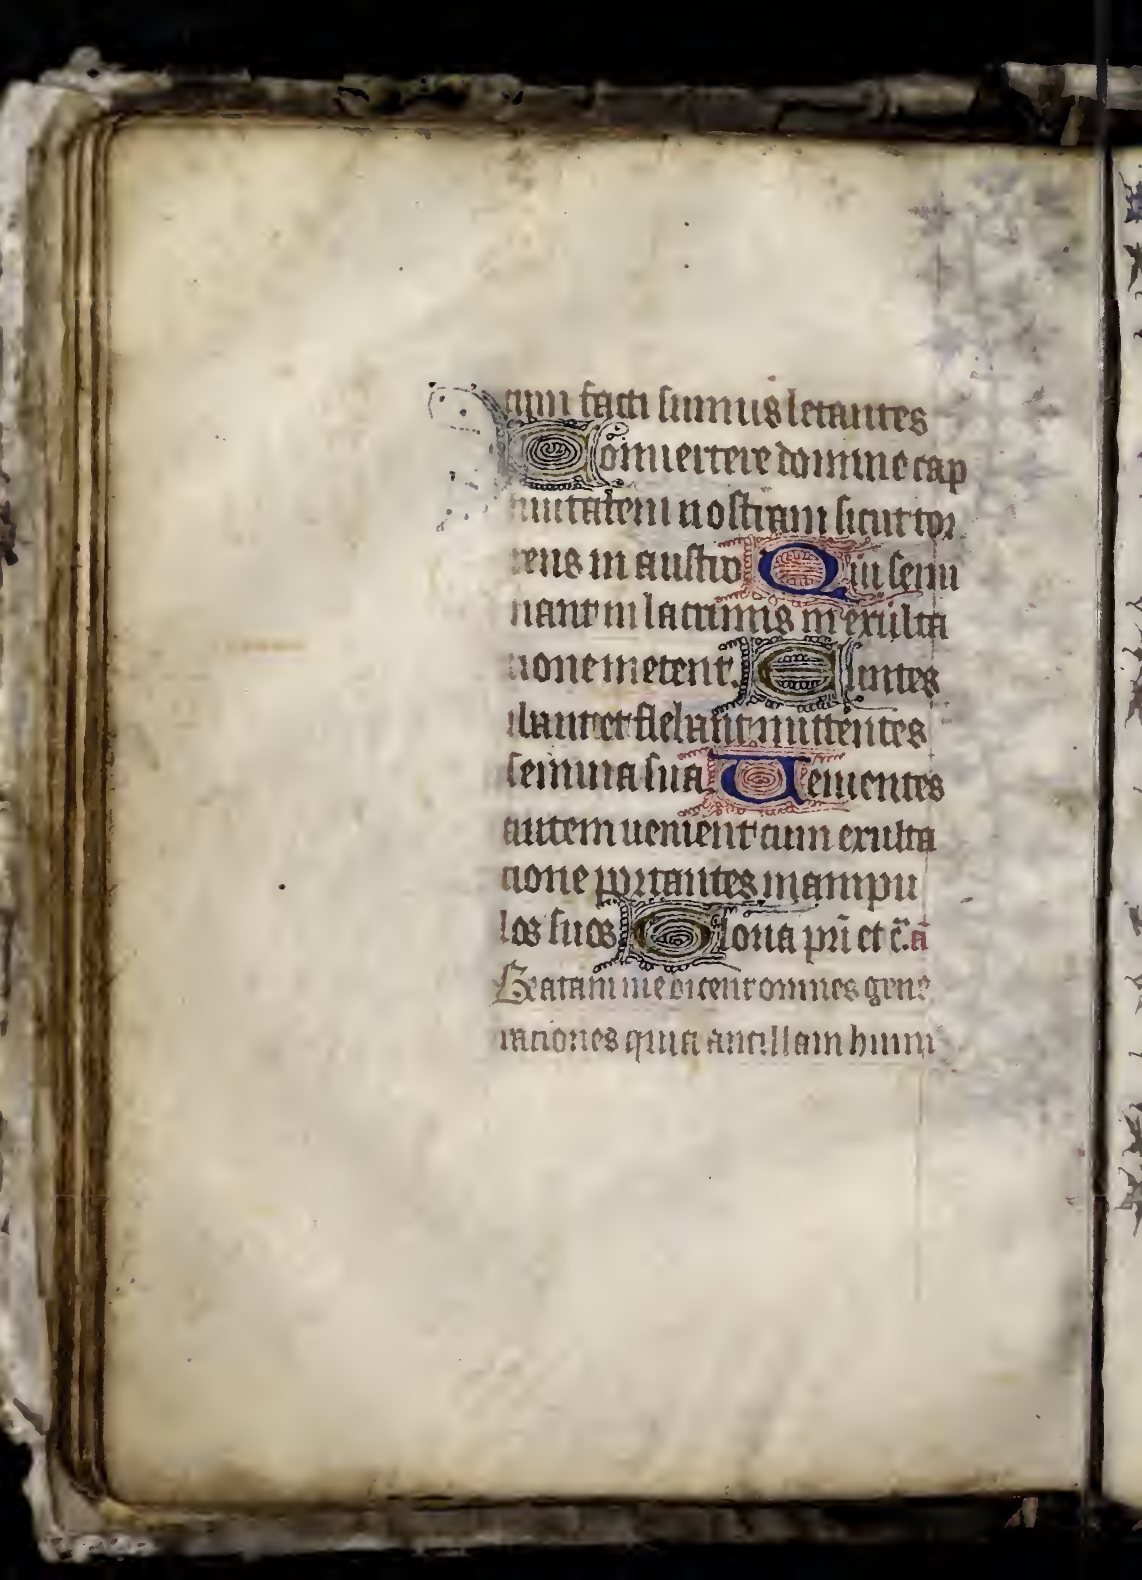 cum facti sumus letantes
Conuertere domine cap
tiuitatem nostram sicut tor
rens in austro Qui semi
nant in lacrimis in exulta
tione metent. Euntes
ibant et flebant mittentes
semina sua. Uenientes
autem uenient cum exulta
tione portantes manipu
los suos Gloria pri et c. a
Beatam me dicent omnes gene
rationes quia ancillam humi